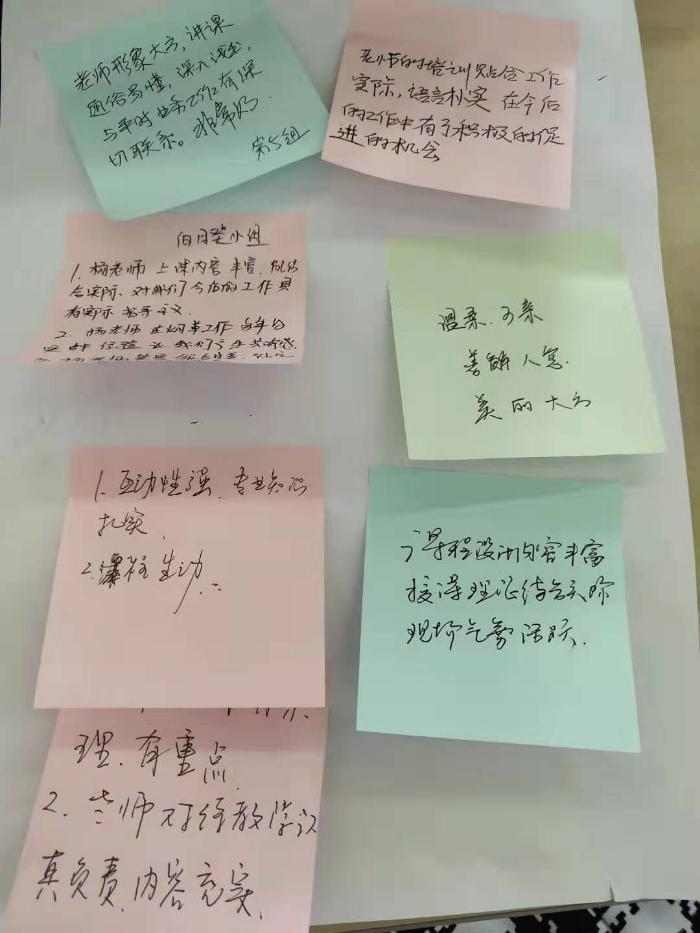 老师形象大方,讲课
通俗易懂,深入浅出,
与平时业务工作有深
切联系。非常好.
第5组
老师的培训贴合工作
实际,语言朴实 在今后
的工作中有了积极的促
进的机会
向日葵小组
1. 杨老师 上课内容丰富,
合实际、对我们今后的工作具
有实际 指导 意义.
2. 杨老师 工作 多年的
经验
温柔.可亲
善解人意.
美丽大方
1. 互动性强、专业知识
扎实、
2. 课程生动.
课程设计内容丰富
理论结合实际
现场气氛活跃.
理.有重点
2. 老师对待教学认
真负责.内容充实.